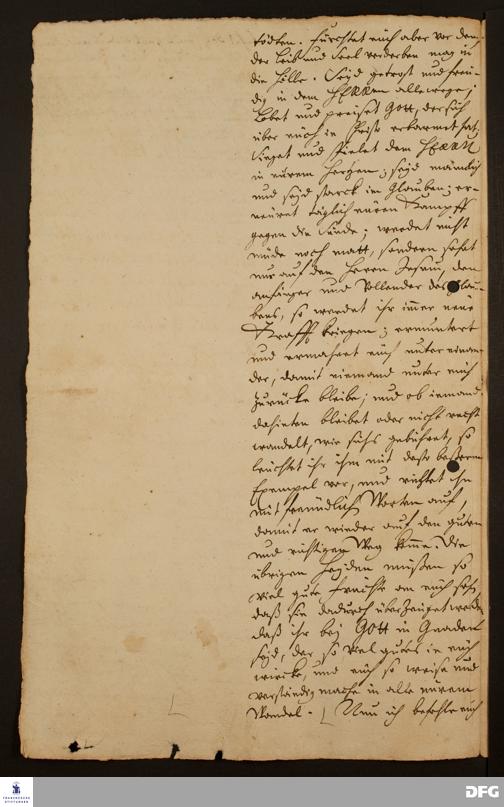 tödten. Fürchtet euch aber vor dem,
der Leib und Seel verderben mag in
die Hölle. Seyd getrost und freu-
dig in dem HERRen allewege;
Lobet und preiset Gott, der sich
über euch in Christo erbarmet hat;
Singet und spielet dem HERRN
in eurem Hertzen; seyd männlich
und seyd starck im Glauben; er-
neuret täglich euren Kampff
gegen die Sünde; werdet nicht
müde noch matt, sondern sehet
nur auf den Herrn Jesum, den
anfänger und Vollender des Glau-
bens, so werdet ihr immer neue
Krafft kriegen; ermuntert
und ermahnet euch unter einan-
der, damit niemand unter euch
zurücke bleibe; und ob iemand
dahinten bleibet oder nicht recht
wandelt, wie sichs gebühret, so
leuchtet ihr ihm mit desto besserem
Exempel vor, und richtet ihn
mit freundlichen Worten auf,
damit er wieder auf den guten
und richtigen Weg komme. Die
übrigen Heyden müßen so
viel gute Früchte an euch sehen,
daß sie dadurch überzeuget werden
daß ihr bey Gott in Gnaden
seyd, der so viel gutes in euch
wircke, und euch so weise und
verständig mache in alle eurem
Wandel. Nun ich befehle euch
FRANCKESCHE
STIFTUNGEN
DFG